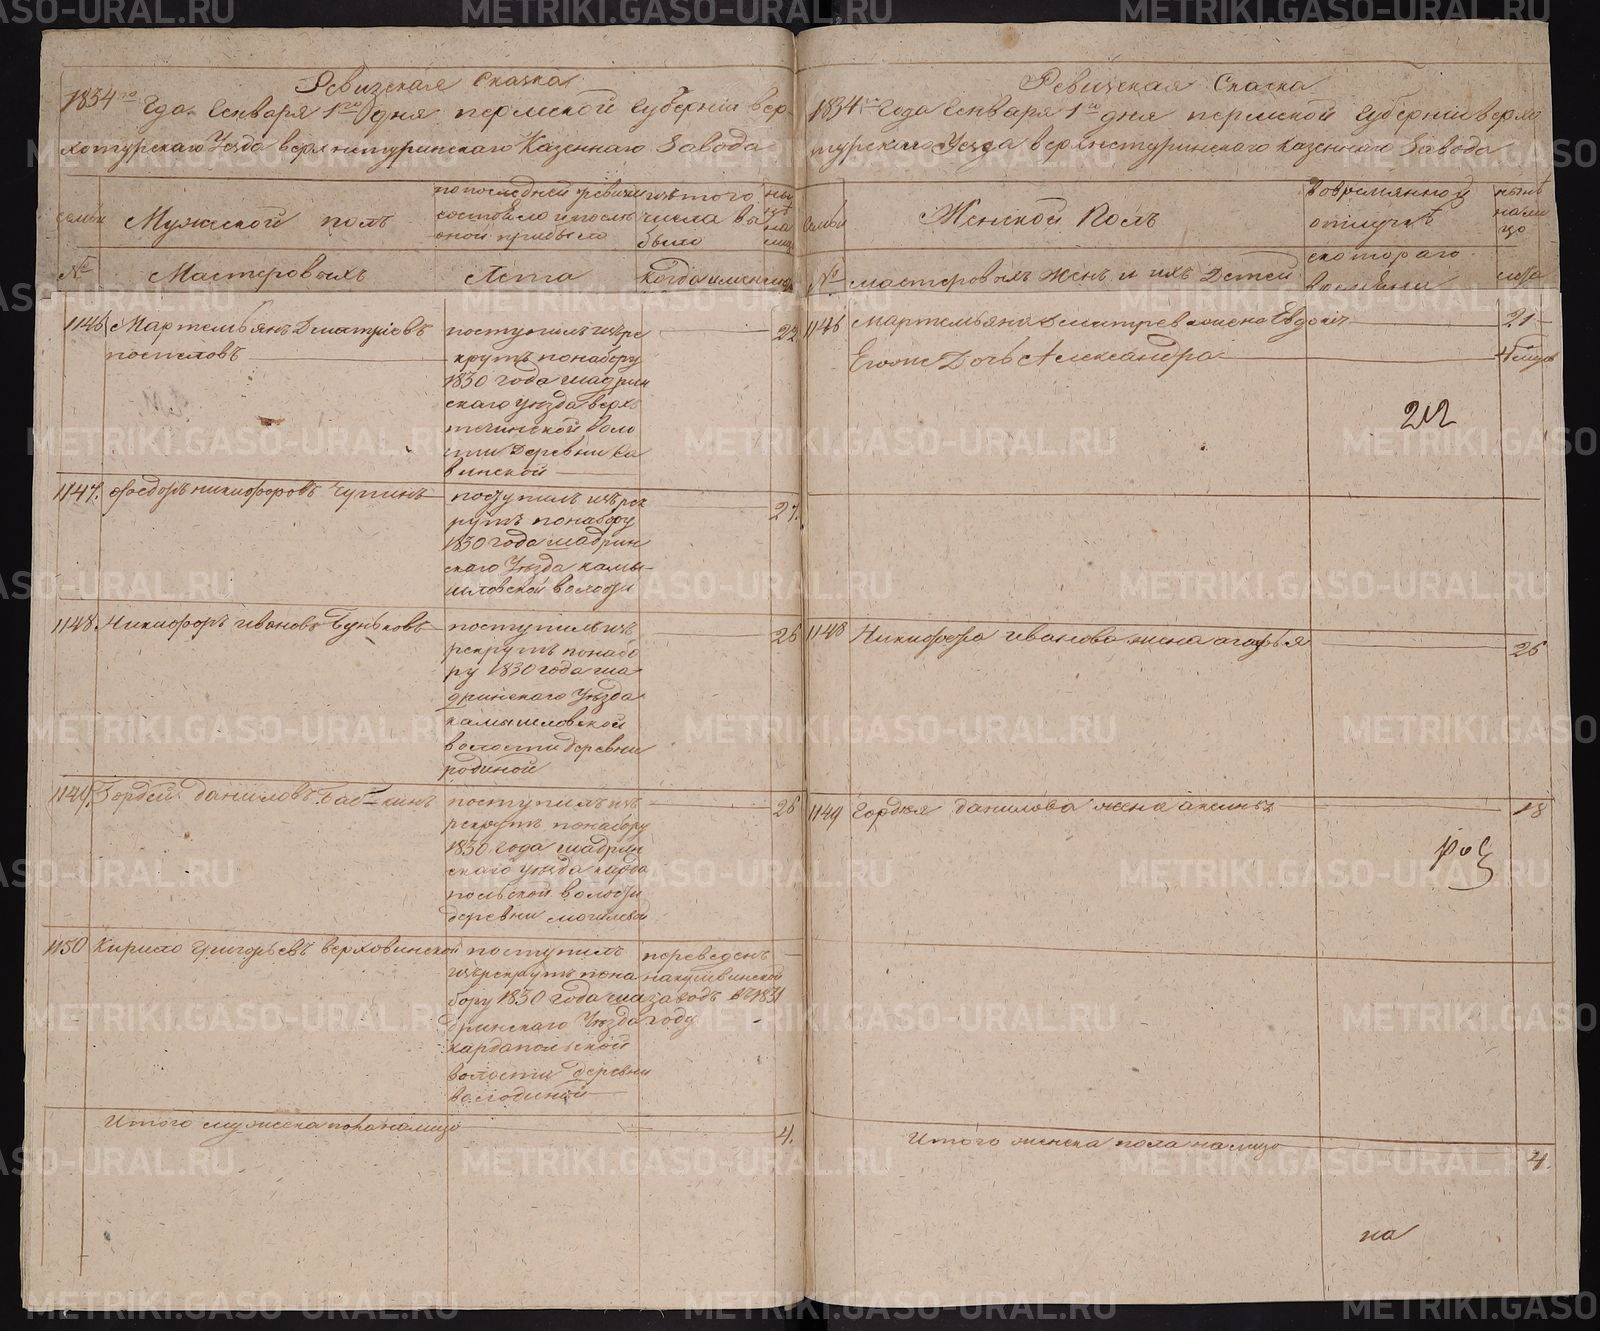 Ревизская Сказка
1834го Года Генваря 1го дня пермской Губерніи вер-
хотурскаго Уезда верхнетуринскаго Казеннаго Завода
семьи
Мужеской полъ
по последней ревизіи
состояло и после
оной прибыло
изъ того
числа вы
было
ны
нѣ
на
лицо
№
Мастеровыхъ
Лета
Когда именно
1146
Мартемьянъ Дмитріевъ
поспеловъ
поступилъ изъ ре
крутъ понабору
1830 года шадрин
скаго уѣзда верхъ
теченской воло
сти Деревни Са
винской
22
1147.
Федоръ никифоровъ Чупинъ
поступилъ изъ рек
рутъ понабору
1830 года шадрин
скаго Уѣзда камы-
шловской волости
27.
1148.
Никифоръ ивановъ Буньковъ
поступилъ изъ
рекрутъ понабо
ру 1830 года ша
дринскаго Уѣзда
камышловской
волости деревни
родиной
26
1149.
Гордей даниловъ Бабкинъ
поступилъ изъ
рекрутъ понабору
1830 года шадрин
скаго уѣзда карга
польской волости
деревни могилевой
26
1150
Кирило Григорьевъ верховинской
поступилъ
изъ рекрутъ пона
бору 1830 года ша
дринскаго Уѣзда
каргапольской
волости деревни
володиной
переведенъ
накушвинской
заводъ въ 1831
году
Итого мужеска пола налицо
4.
Ревизская Сказка
1834го Года Генваря 1го дня пермской Губерніи верхо
турскаго Уезда верхнетуринскаго Казеннаго Завода
семьи
Женской Полъ
во временной
отлучкѣ
нынѣ
нали
цо
№
мастеровыхъ Женъ и ихъ Детей
скотораго
времени
лета
1146
Мартемьяна дмитрева жена Евдокия
21
Егоже Дочь Александра
212
1148
Никифора иванова жена агафья
26
1149
Гордея данилова жена аксинья
18
Итого женска пола налицо
4.
на